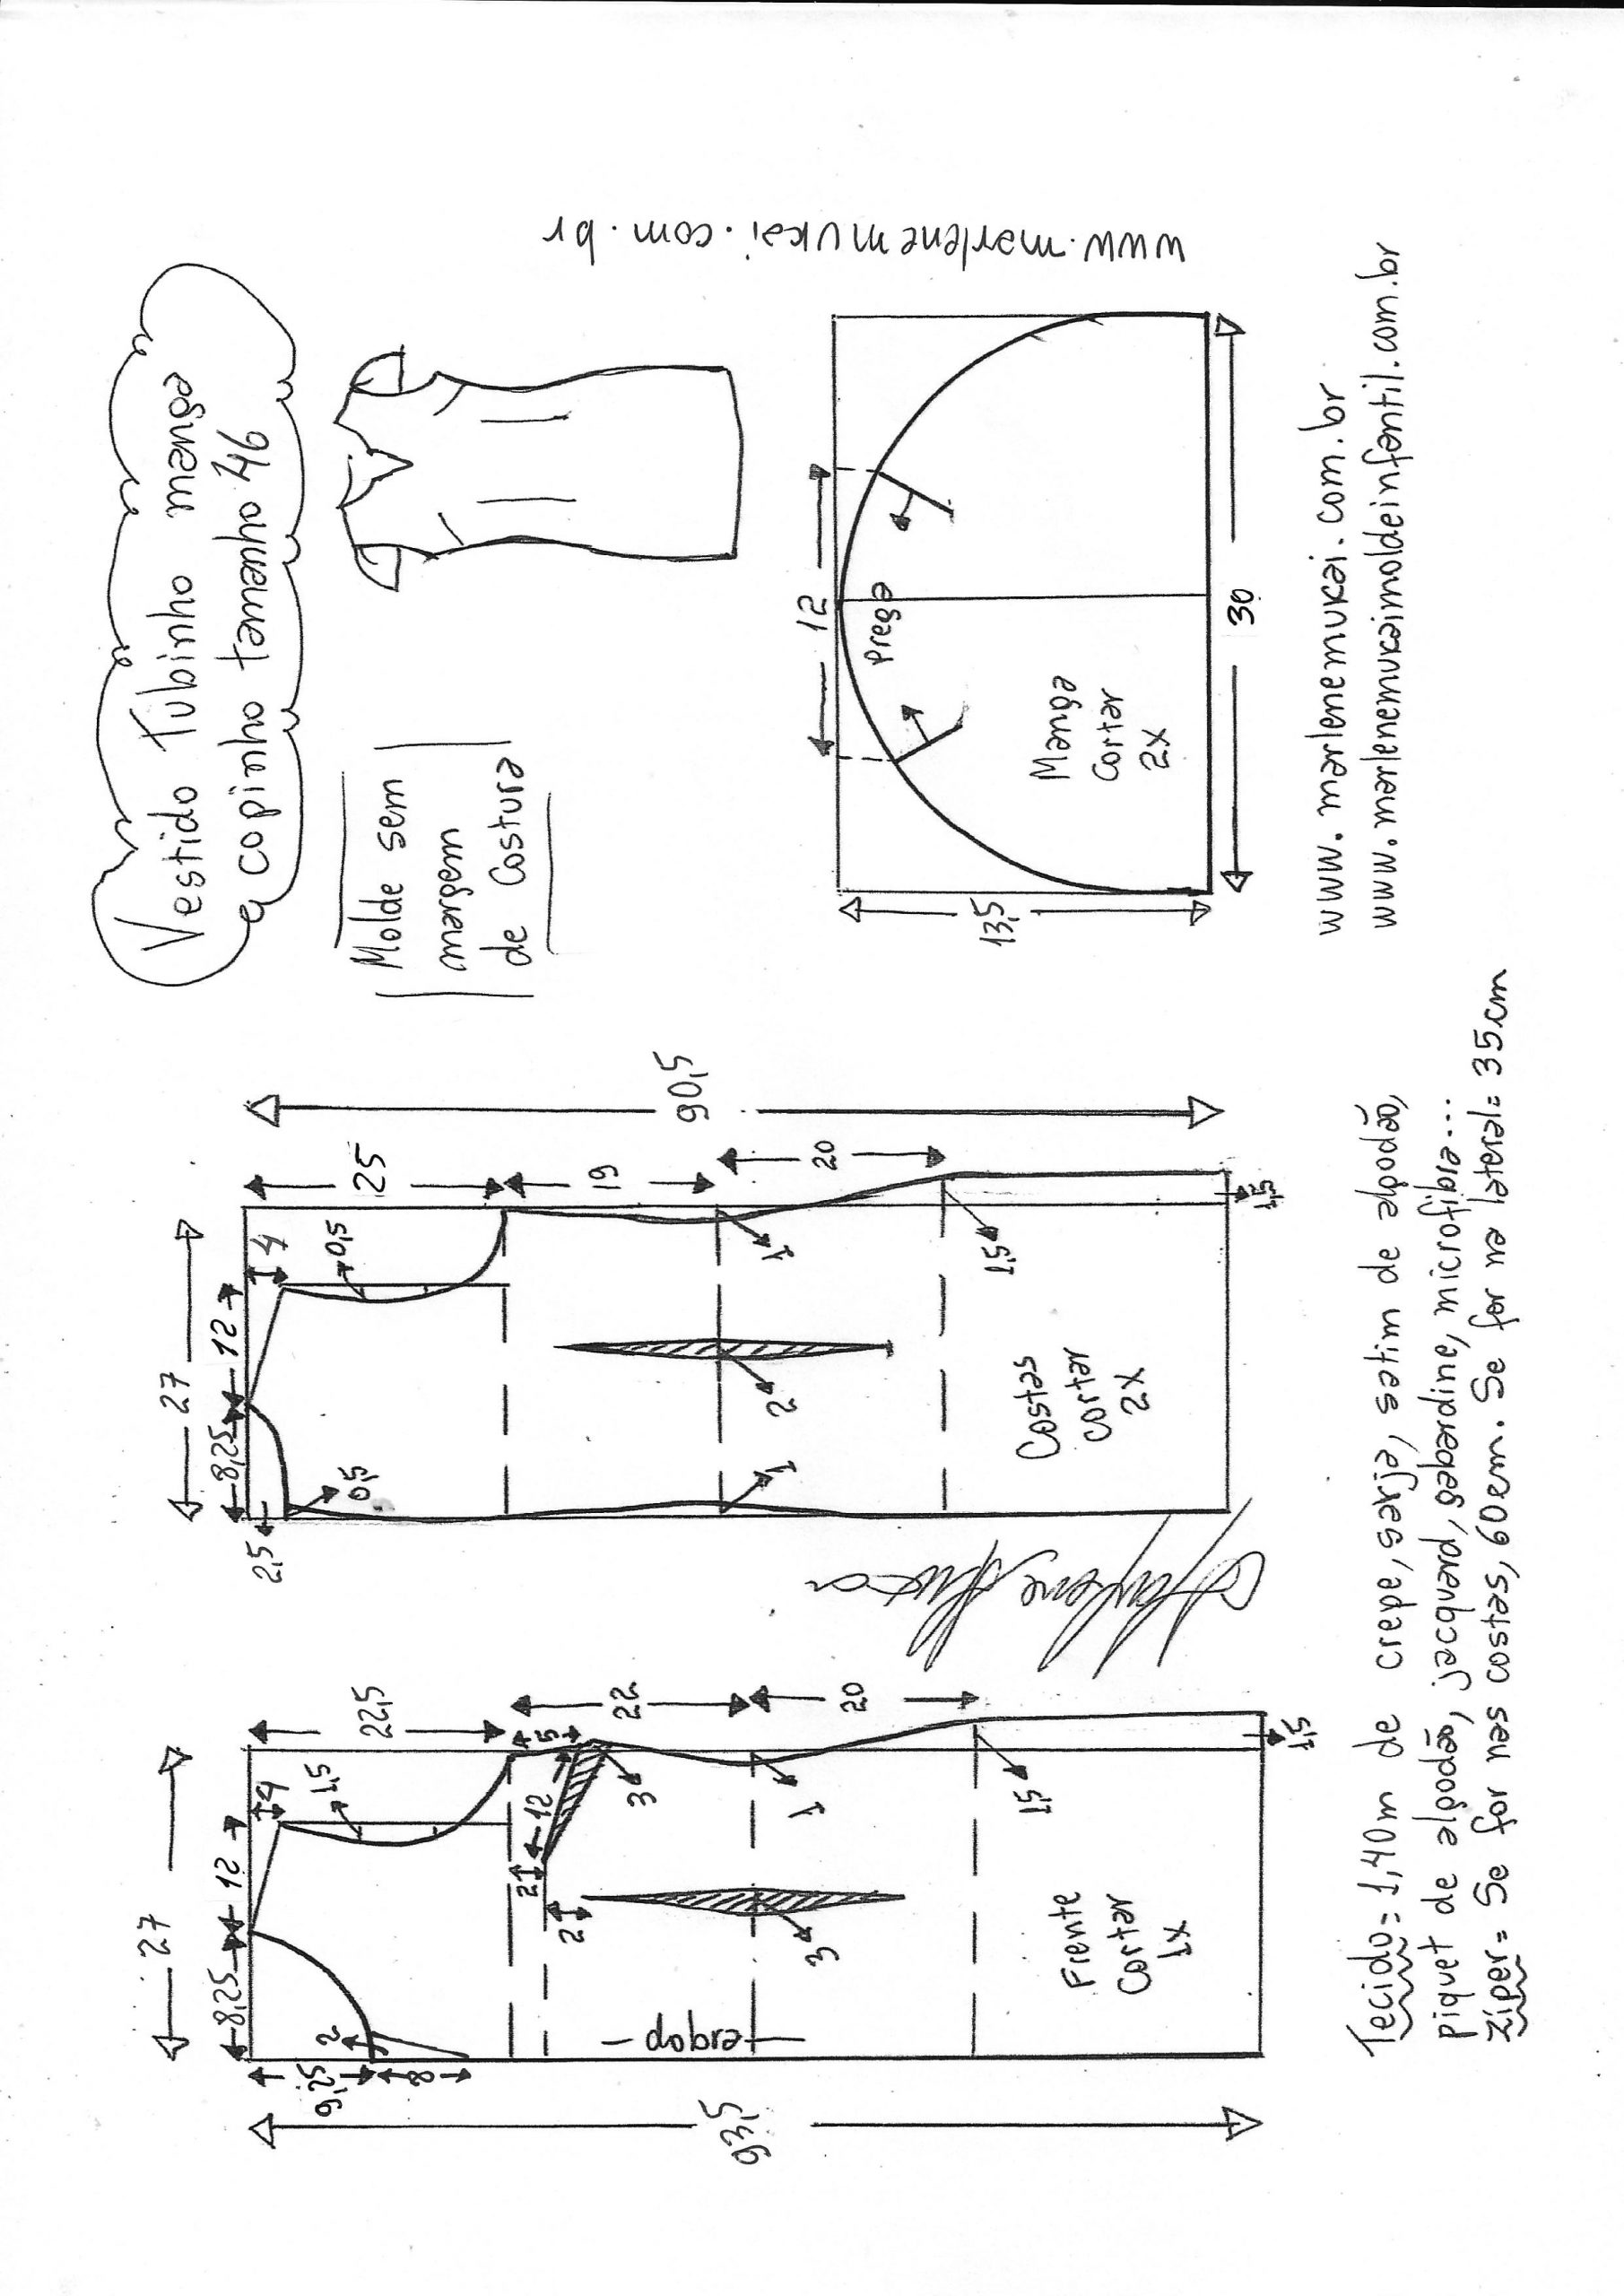 Vestido Tubinho manga
copinho tamanho 46
Molde sem
margem
de costura
www.marlenemukai.com.br
27
8,25
12
4
1,5
2
9,25
8
22,5
5
12
3
2
2
22
1
20
3
1,5
1,5
dobra
Frente
Cortar
1x
93,5
27
8,25
12
4
0,5
2,5
0,5
25
19
1
1
2
20
1,5
1,5
Costas
cortar
2x
90,5
12
Prega
Manga
Cortar
2x
13,5
30
www.marlenemukai.com.br
www.marlenemukaimoldeinfantil.com.br
Tecido= 1,40m de crepe, sarja, satim de algodão,
piquet de algodão, jacquard, gabardine, microfibra...
Zíper= Se for nas costas, 60cm. Se for na lateral= 35cm